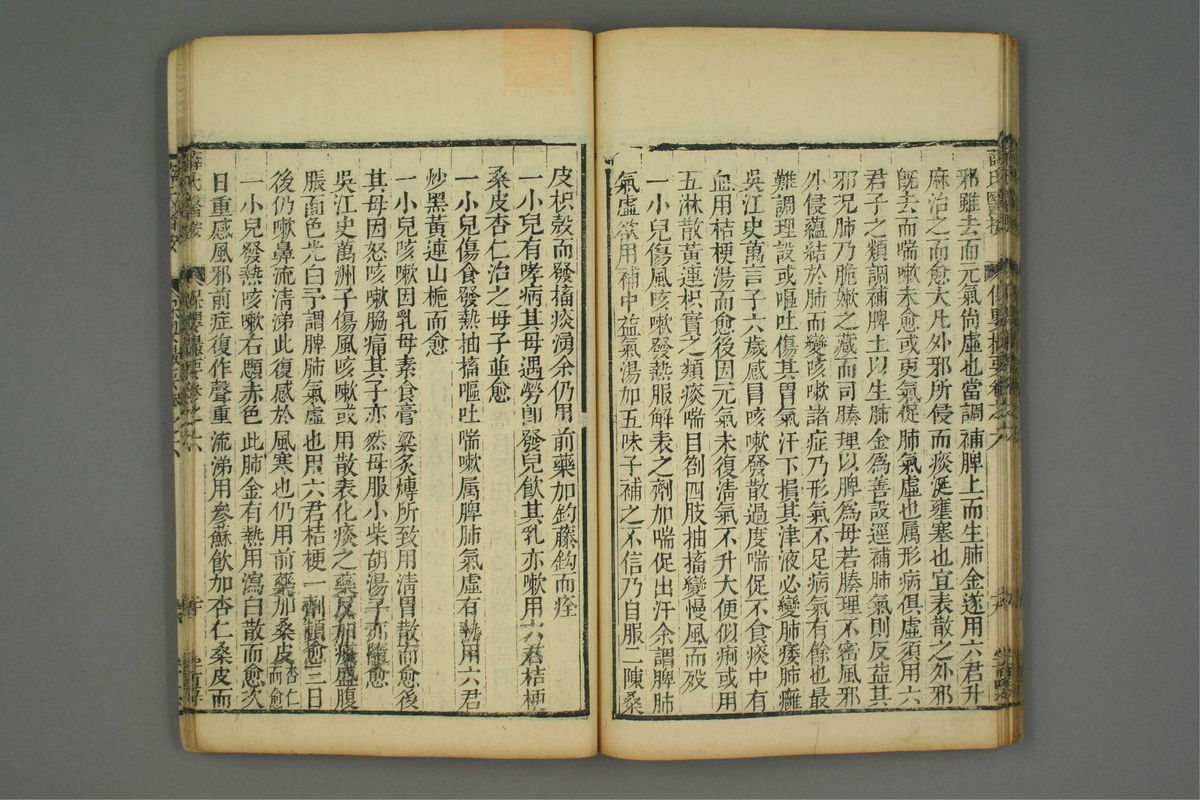 邪雖去而元氣尙虛也當調補脾上而生肺金遂用六君升
麻治之而愈大凡外邪所侵而痰涎壅塞也宜表散之外邪
旣去而喘嗽未愈或更氣促肺氣虛也属形病俱虛須用六
君子之類調補脾土以生肺金爲善設逕補肺氣則反益其
邪况肺乃脆嫩之藏而司腠理以脾爲母若腠理不密風邪
外侵蘊結於肺而變咳嗽諸症乃形氣不足病氣有餘也最
難調理設或嘔吐傷其胃氣汗下損其津液必變肺痿肺癰
吳江史萬言子六歲感冒咳嗽發散過度喘促不食痰中有
血用桔梗湯而愈後因元氣未復淸氣不升大便似痢或用
五淋散黃連枳實之類痰喘目劄四肢抽搐變慢風而殁
一小兒傷風咳嗽發熱服解表之劑加喘促出汗余謂肺脾
氣虛欲用補中益氣湯加五味子補之不信乃自服二陳桑
皮枳殼而發搐痰湧余仍用前藥加釣藤鈎而痊
一小兒有哮病其母遇勞卽發兒飮其乳亦嗽用六君桔梗
桑皮杏仁治之母子並愈
一小兒傷食發熱抽搐嘔吐喘嗽属脾肺氣虛有熱用六君
炒黑黃連山梔而愈
一小兒咳嗽因乳母素食膏粱炙煿所致用淸胃散而愈後
其母因怒咳嗽脇痛其子亦然母服小柴胡湯子亦隨愈
吳江史萬洲子傷風咳嗽或用散表化痰之藥反加痰盛腹
脹面色㿠白予謂脾肺氣虛也用六君桔梗一劑頓愈三日
後仍嗽鼻流淸涕此復感於風寒也仍用前藥加桑皮杏仁而愈
一小兒發熱咳嗽右顋赤色此肺金有熱用瀉白散而愈次
日重感風邪前症復作聲重流涕用參蘇飮加杏仁桑皮而
薛氏醫按
保嬰撮要卷之六